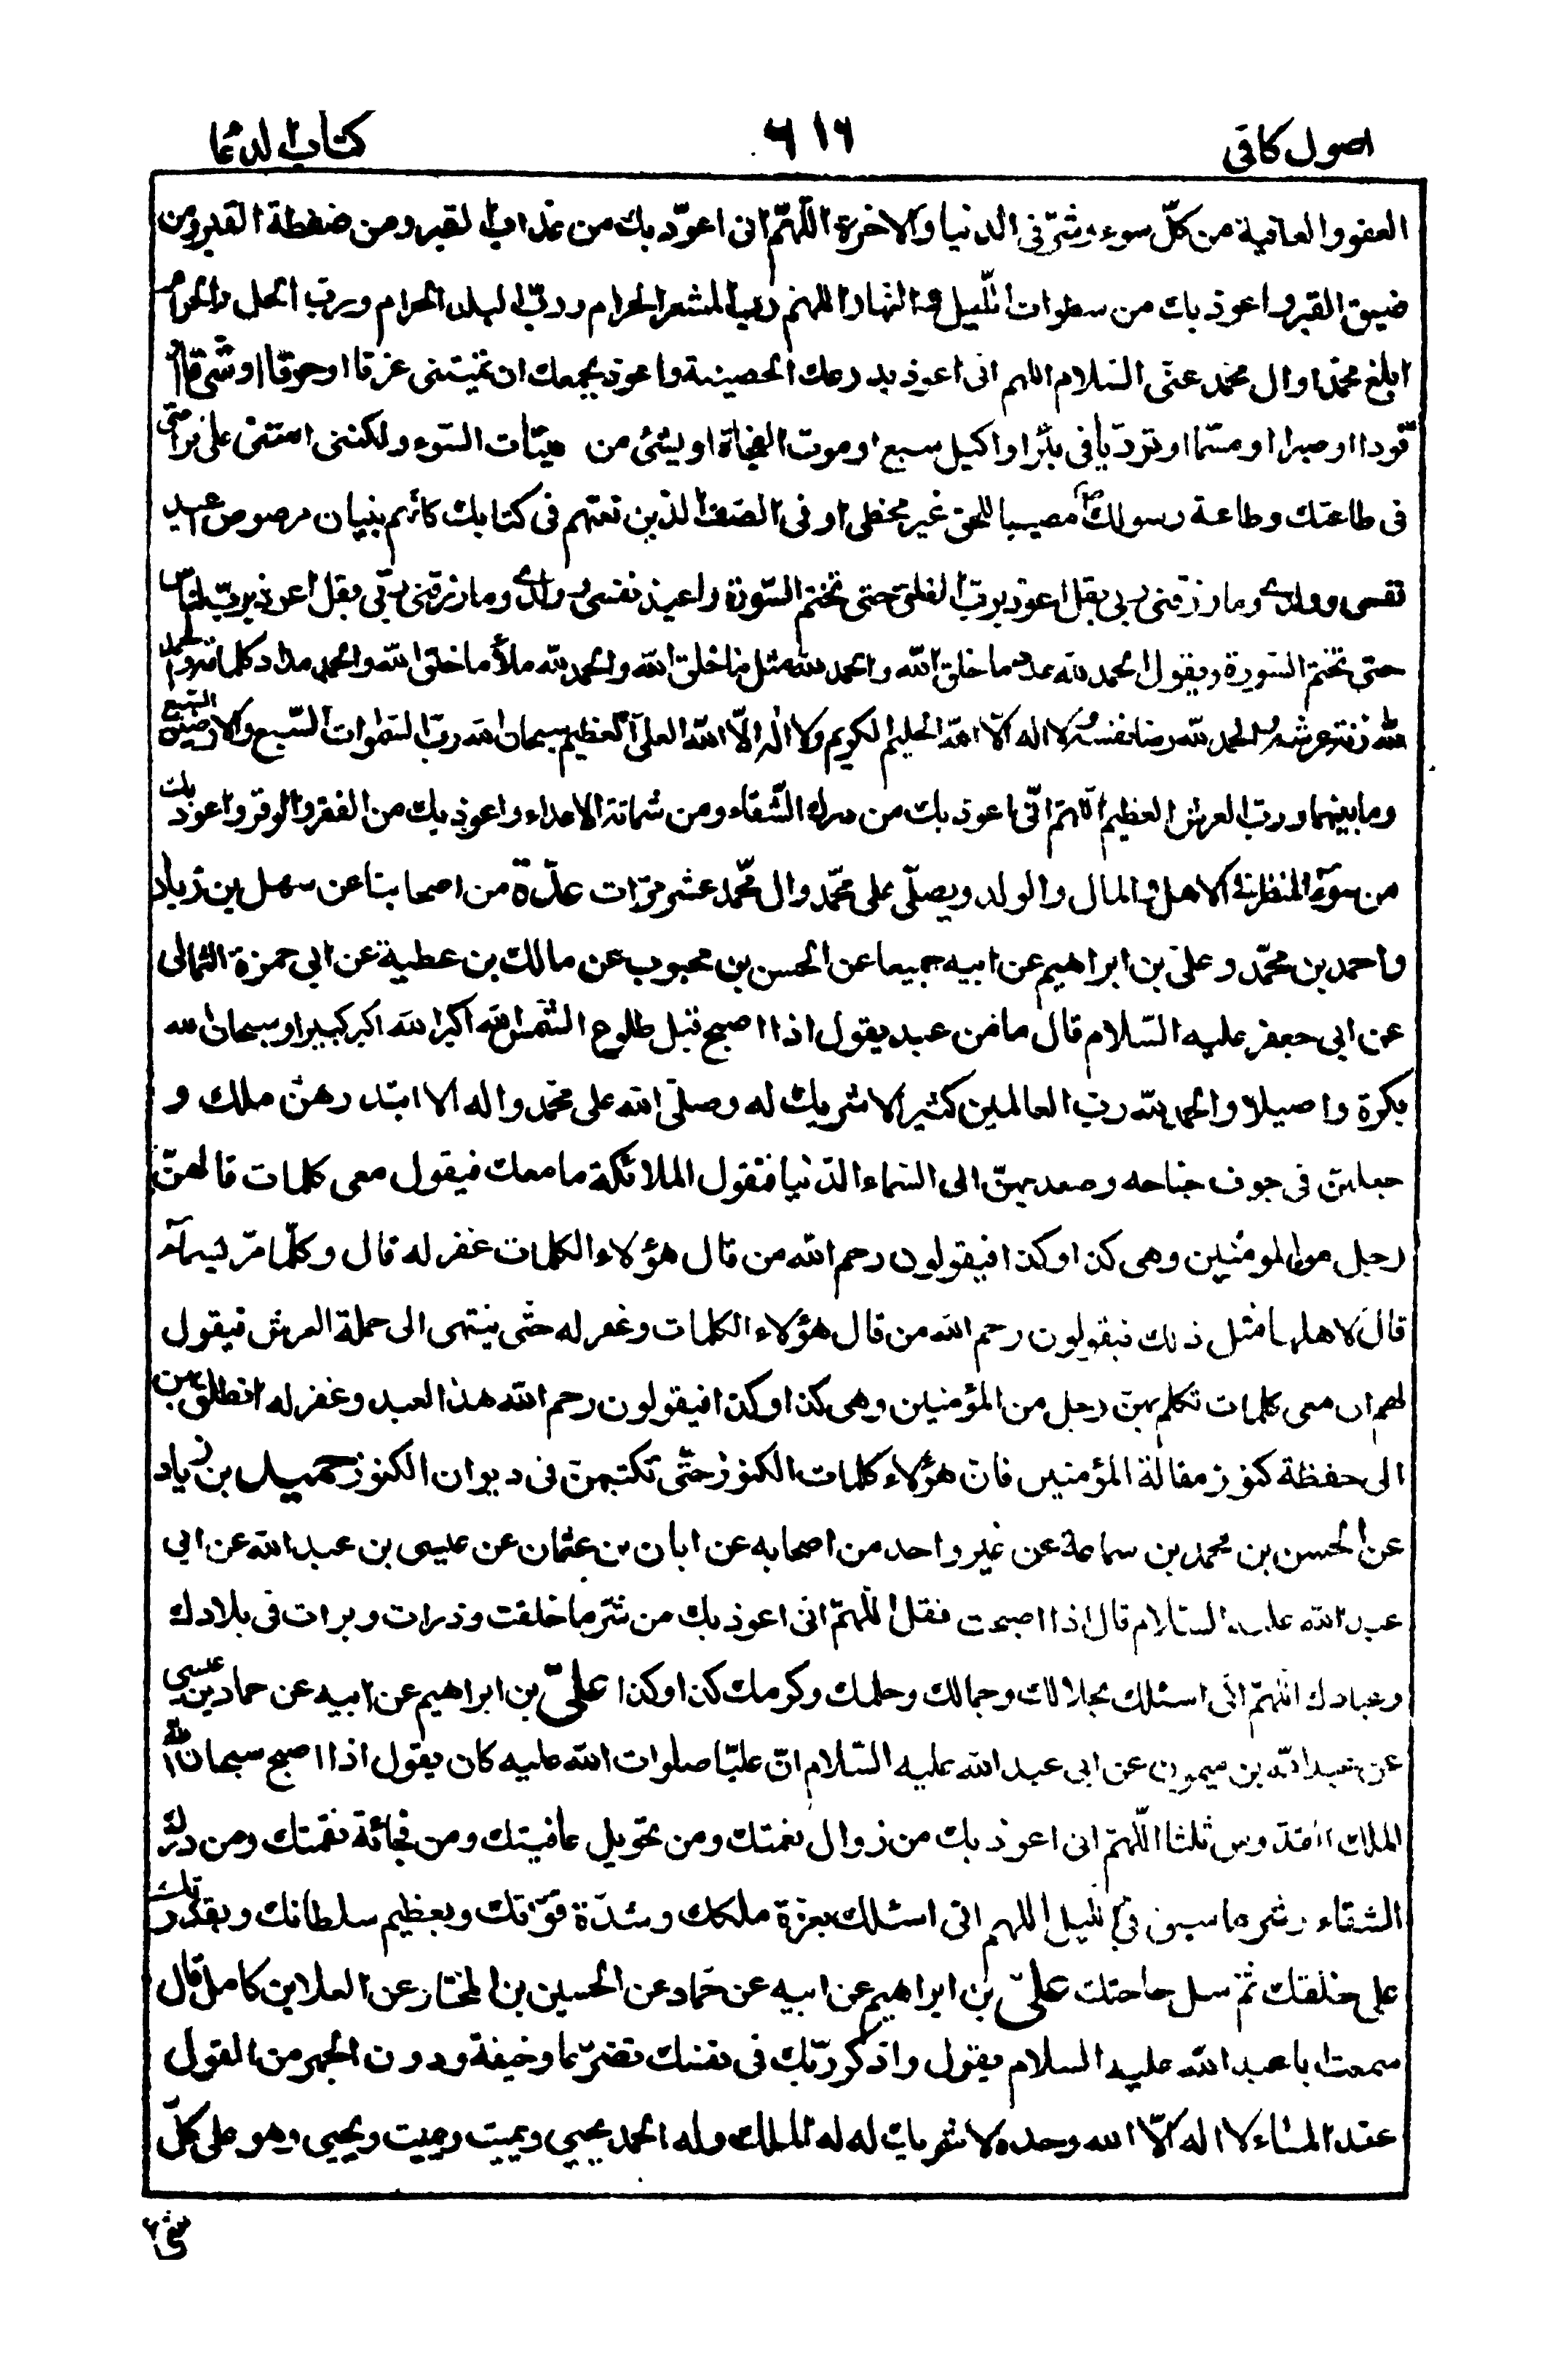 اصول كافى
٦١٦
كتاب الدعا
العفو والعافية من كلّ سوء وشرّ فى الدنيا والاخرة اللّهمّ انى اعوذ بك من عذاب القبر ومن ضغطة القبر ومن
ضيق القبر واعوذ بك من سطوات اللّيل والنهار اللهم ربّ المشعر الحرام وربّ البلد الحرام وربّ الحل والحرام
ابلغ محمّدا وال محمد عنّى السّلام اللهم انى اعوذ بدرعك الحصينة واعوذ بجمعك ان تميتنى غرقا او حرقا او شرقا او
قودا او صبرا او مسمّا او تردّيا فى بئر او اكيل سبع او موت الفجأة او بشئ من ميتات السّوء ولكننى امتنى على فراشى
فى طاعتك وطاعة رسولك ص مصيبا للحق غير مخطى او فى الصّف الذين نعتهم فى كتابك كانّهم بنيان مرصوص اعيذ
نفسى وولدى وما رزقنى ربى بقل اعوذ بربّ الفلق حتى تختم السّورة واعيذ نفسى وولدى وما رزقنى ربّى بقل اعوذ بربّ النّاس
حتى تختم السّورة ويقول الحمد لله عدد ما خلق الله والحمد لله مثل ما خلق الله والحمد لله ملأ ما خلق الله والحمد لله مداد كلماته والحمد
لله زنة عرشه والحمد لله رضا نفسه ولا اله الّا الله الحليم الكريم ولا اله الّا الله العلىّ العظيم سبحان الله ربّ السّموات السّبع والارضين السّبع
وما بينهما وربّ العرش العظيم اللّهمّ انّى اعوذ بك من درك الشّقاء ومن شماتة الاعداء واعوذ بك من الفقر والوقر واعوذ بك
من سوء المنظر فى الاهل والمال والولد ويصلّى على محمّد وال محمّد عشر مرّات عدّة من اصحابنا عن سهل بن زياد
واحمد بن محمّد وعلى بن ابراهيم عن ابيه جميعا عن الحسن بن محبوب عن مالك بن عطية عن ابى حمزة الثمالى
عن ابى جعفر عليه السّلام قال ما من عبد يقول اذا اصبح قبل طلوع الشّمس الله اكبر الله اكبر كبيرا وسبحان الله
بكرة واصيلا والحمد لله ربّ العالمين كثيرا لا شريك له وصلّى الله على محمّد واله الا ابتدرهنّ ملك و
جعلهنّ فى جوف جناحه وصعد بهنّ الى السّماء الدّنيا فتقول الملائكة ما معك فيقول معى كلمات قالهنّ
رجل من المومنين وهى كذا وكذا فيقولون رحم الله من قال هؤلاء الكلمات غفر له قال وكلّما مرّ بسماء
قال لاهلها مثل ذلك فيقولون رحم الله من قال هؤلاء الكلمات وغفر له حتّى ينتهى الى حملة العرش فيقول
لهم ان معى كلمات تكلم بهنّ رجل من المؤمنين وهى كذا وكذا فيقولون رحم الله هذا العبد وغفر له انطلق بهن
الى حفظة كنوز مقالة المؤمنين فان هؤلاء كلمات الكنوز حتّى تكتبهنّ فى ديوان الكنوز حميد بن زياد
عن الحسن بن محمد بن سماعة عن غير واحد من اصحابه عن ابان بن عثمان عن عيسى بن عبد الله عن ابى
عبد الله عليه السّلام قال اذا اصبحت فقل اللّهمّ انى اعوذ بك من شرّ ما خلقت وذرات وبرات فى بلادك
وعبادك اللّهمّ انى اسئلك بجلالك وجمالك وحلمك وكرمك كذا وكذا علىّ بن ابراهيم عن ابيه عن حماد بن عيسى
عن عبد الله بن ميمون عن ابى عبد الله عليه السّلام انّ عليّا صلوات الله عليه كان يقول اذا اصبح سبحان الله
الملك القدّوس ثلثا اللّهمّ انى اعوذ بك من زوال نعمتك ومن تحويل عافيتك ومن فجائة نقمتك ومن درك
الشقاء وشر ما سبق فى الليل اللهم انى اسئلك بعزة ملكك وشدّة قوّتك وبعظيم سلطانك وبقدرتك
على خلقك ثمّ سل حاجتك علىّ بن ابراهيم عن ابيه عن حمّاد عن الحسين بن المختار عن العلا بن كامل قال
سمعت ابا عبد الله عليه السلام يقول واذكر ربّك فى نفسك تضرّعا وخيفة ودون الجهر من القول
عند المساء لا اله الّا الله وحده لا شريك له له الملك وله الحمد يحيى ويميت ويميت ويحيى وهو على كلّ
شئ